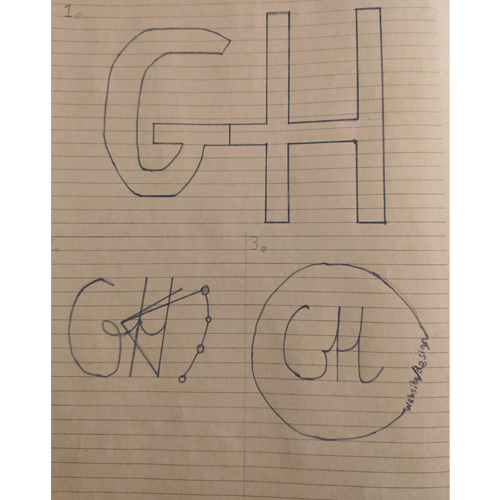 1.
GH
2.
3.
GH
GH
website design